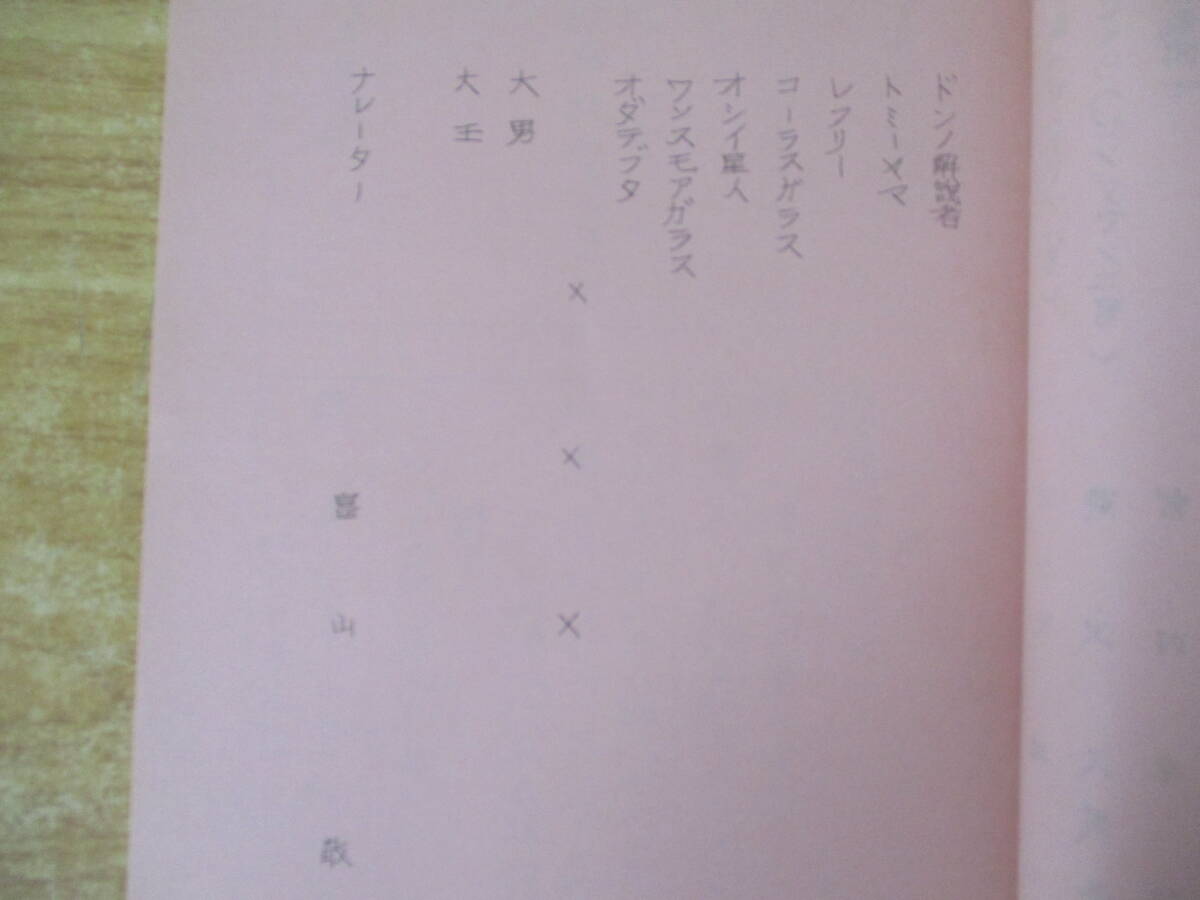 ドンノ解説者
トミーメマ
レフリー
コーラスガラス
オシイ星人
ワンスモアガラス
オダデブタ
× × ×
大男
大王
ナレーター 富山敬